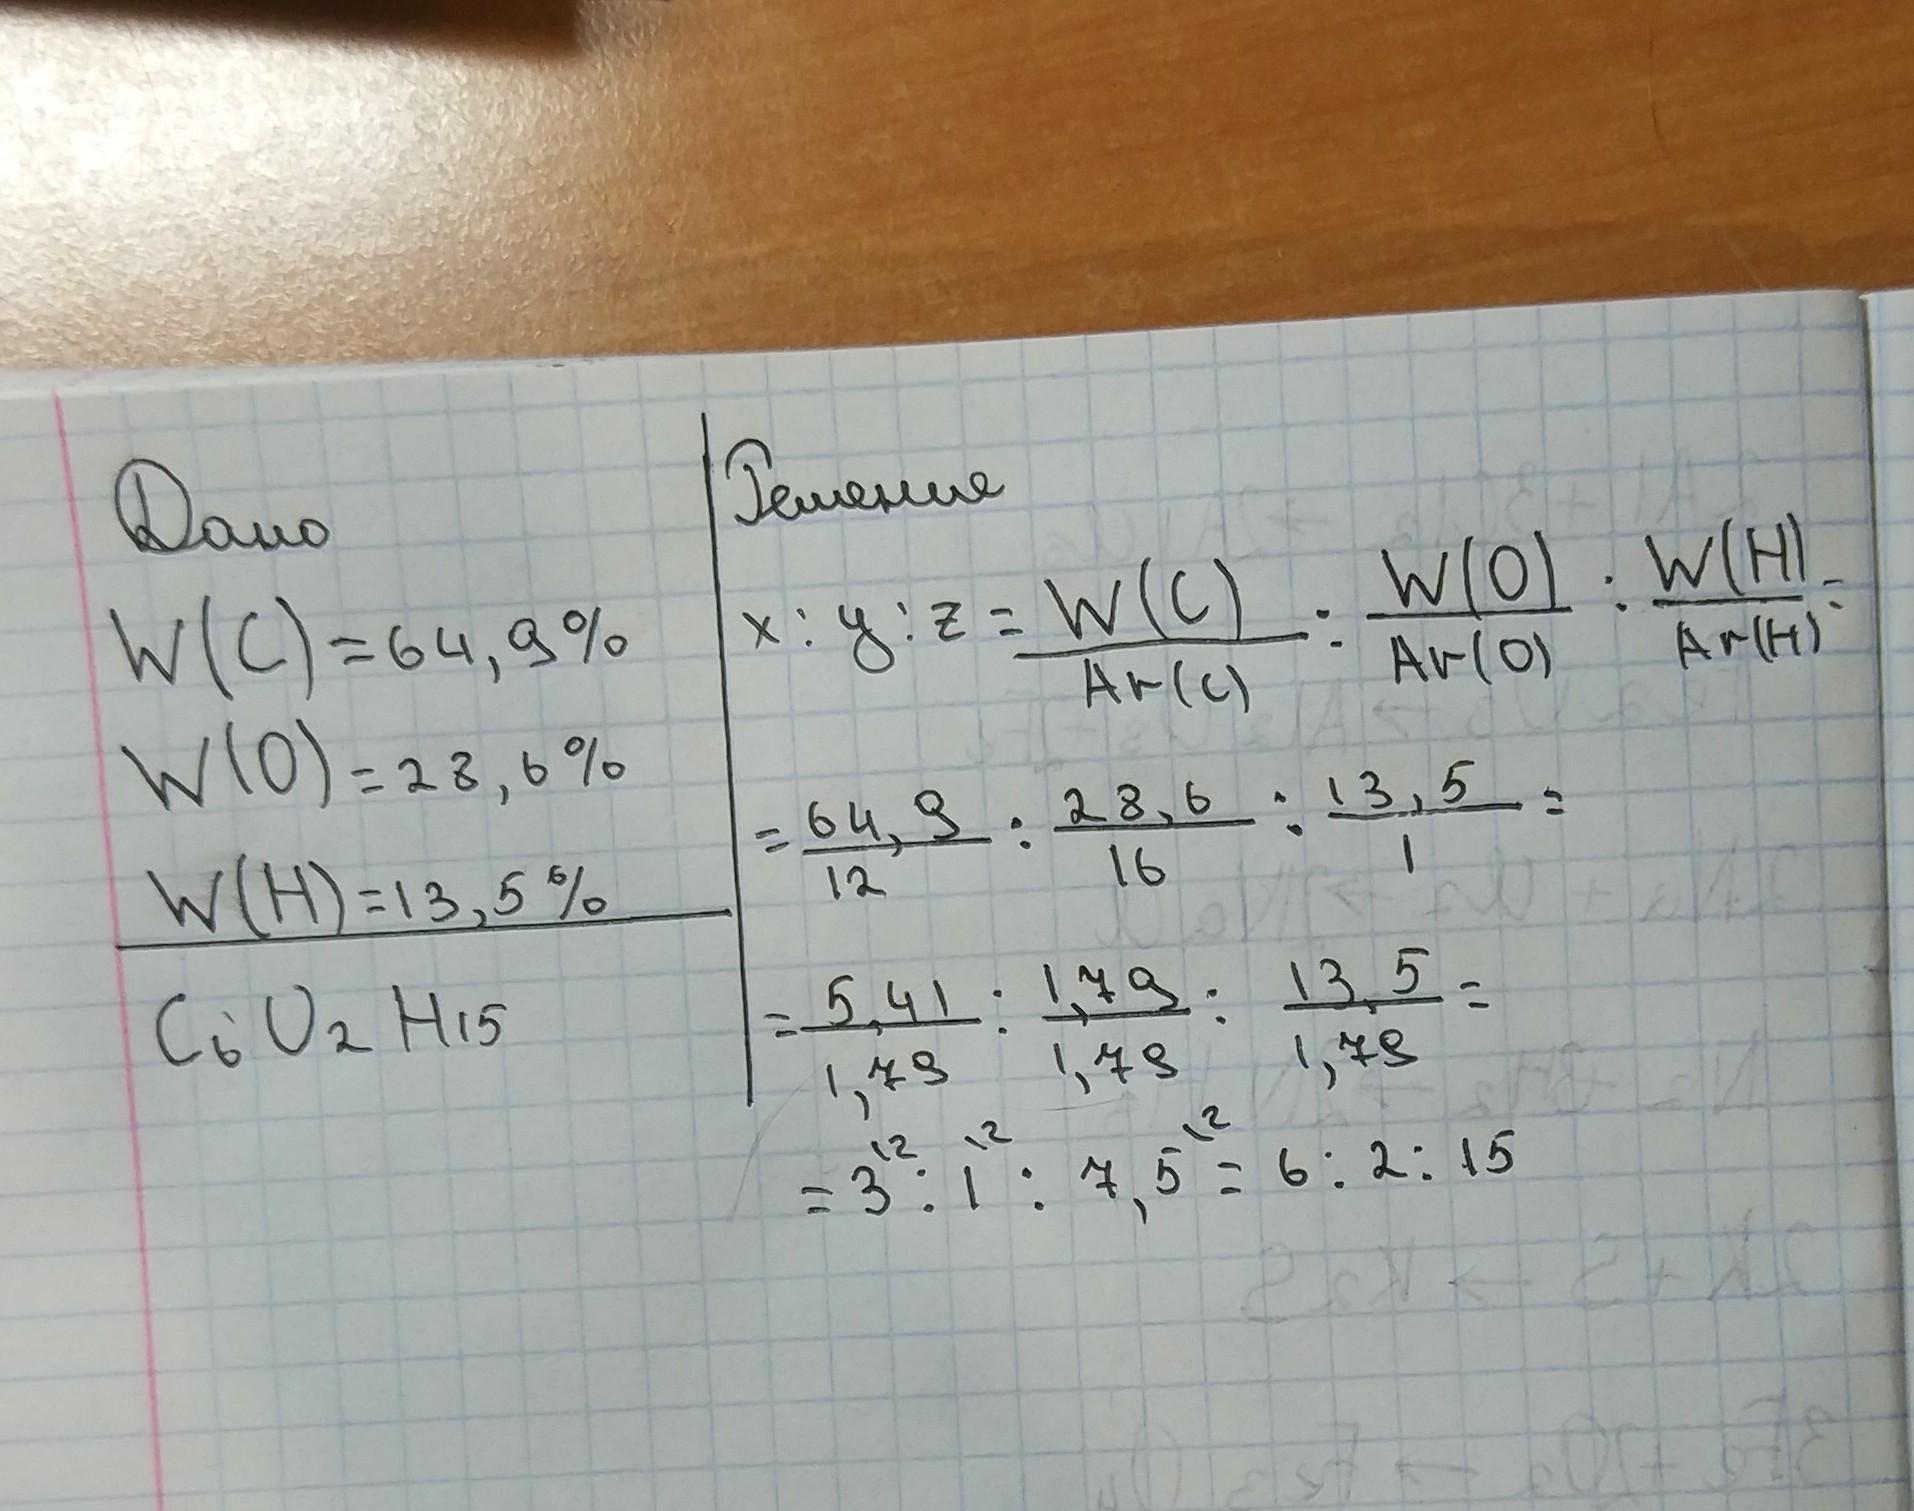 Дано
W(C)=64,9%
W(O)=28,6%
W(H)=13,5%
C6O2H15
Решение
x:y:z= W(C)/Ar(C) : W(O)/Ar(O) : W(H)/Ar(H) =
= 64,9/12 : 28,6/16 : 13,5/1 =
= 5,41/1,79 : 1,79/1,79 : 13,5/1,79 =
=3\2 : 1\2 : 7,5\2 = 6:2:15
2K+S→K2S